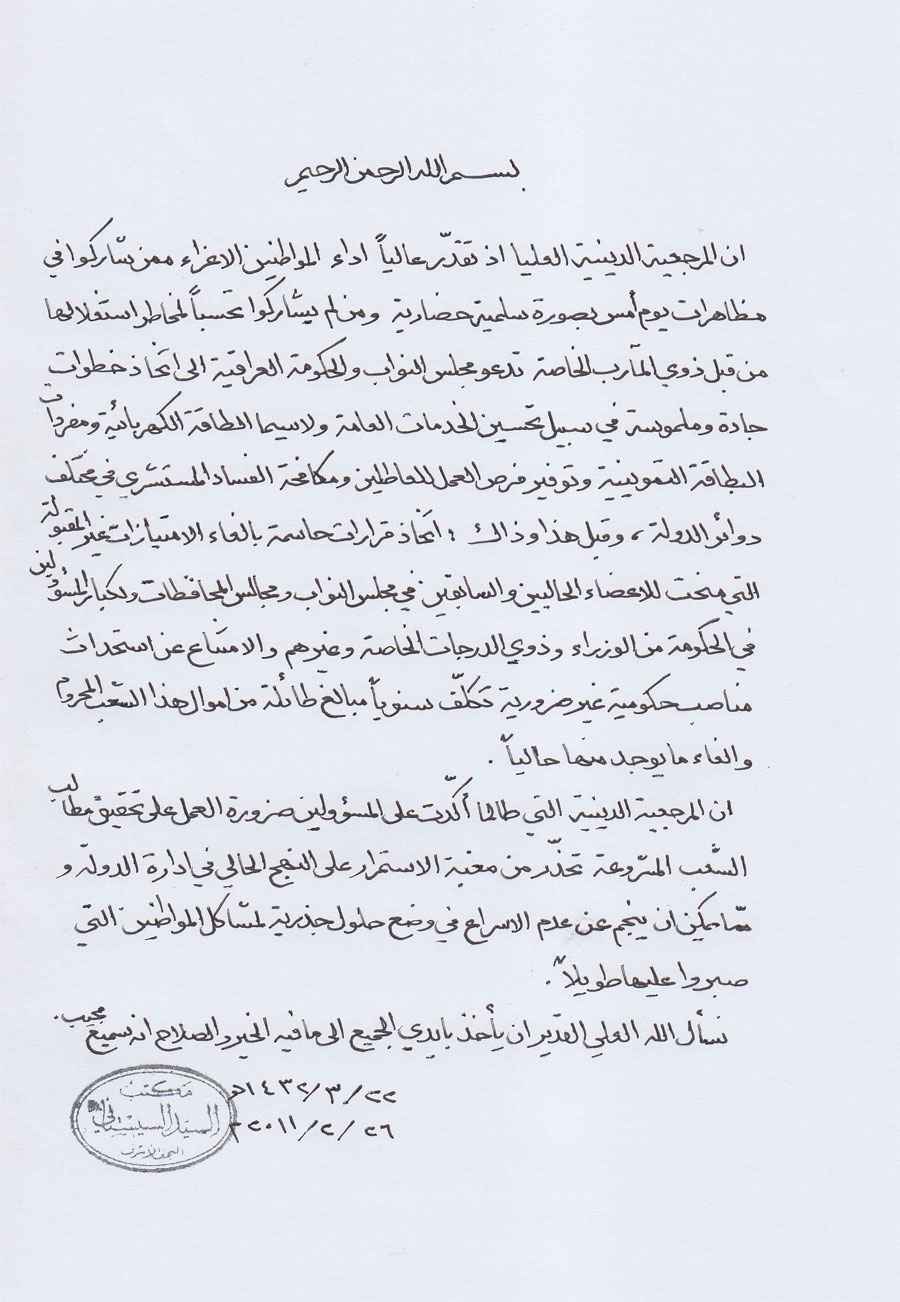 بسم الله الرحمن الرحيم
ان المرجعية الدينية العليا اذ تقدّر عالياً اداء المواطنين الاعزاء ممن شاركوا في
مظاهرات يوم أمس بصورة سلمية حضارية ومن لم يشاركوا تحسباً لمخاطر استغلالها
من قبل ذوي المآرب الخاصة تدعو مجلس النواب والحكومة العراقية الى اتخاذ خطوات
جادة وملموسة في سبيل تحسين الخدمات العامة ولاسيما الطاقة الكهربائية ومفردات
البطاقة التموينية وتوفير فرص العمل للعاطلين ومكافحة الفساد المستشري في مختلف
دوائر الدولة ، وقبل هذا وذاك : اتخاذ قرارات حاسمة بالغاء الامتيازات غير المقبولة
التي منحت للاعضاء الحاليين والسابقين في مجلس النواب ومجالس المحافظات ولكبار المسؤولين
في الحكومة من الوزراء وذوي الدرجات الخاصة وغيرهم والامتناع عن استحداث
مناصب حكومية غير ضرورية تكلّف سنوياً مبالغ طائلة من اموال هذا الشعب المحروم
والغاء ما يوجد منها حالياً .
ان المرجعية الدينية التي طالما أكدّت على المسؤولين ضرورة العمل على تحقيق مطالب
الشعب المشروعة تحذّر من مغبة الاستمرار على النهج الحالي في ادارة الدولة و
ممّا يمكن ان ينجم عن عدم الاسراع في وضع حلول جذرية لمشاكل المواطنين التي
صبروا عليها طويلاً .
نسأل الله العلي القدير ان يأخذ بايدي الجميع الى ما فيه الخير والصلاح انه سميع مجيب .
٢٢/٣/١٤٣٢هـ
٢٦/٢/٢٠١١م
مكتب
السيد السيستاني
النجف الاشرف